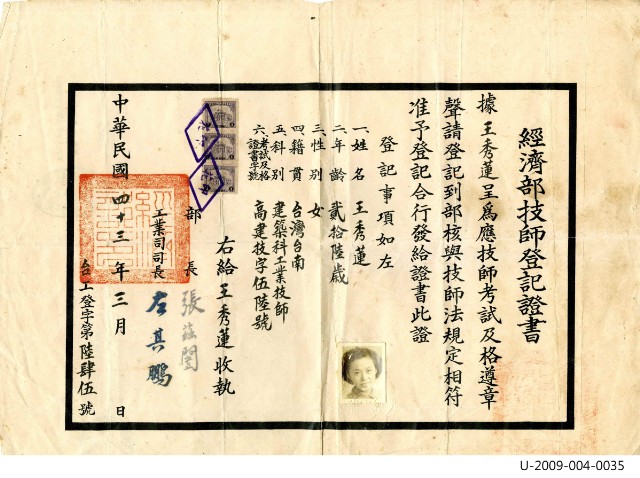 經濟部技師登記證書
據王秀蓮呈為應技師考試及格遵章
聲請登記到部核與技師法規定相符
准予登記合行發給證書此證
登記事項如左
一、姓名 王秀蓮
二、年齡 貳拾陸歲
三、性別 女
四、籍貫 台灣台南
五、科別 建築科工業技師
六、考試及格證書字號 高建技字伍陸號
右給王秀蓮收執
部長 張茲闓
工業司司長 左其鵬
中華民國四十三年三月 日
台工登字第陸肆伍號
U-2009-004-0035